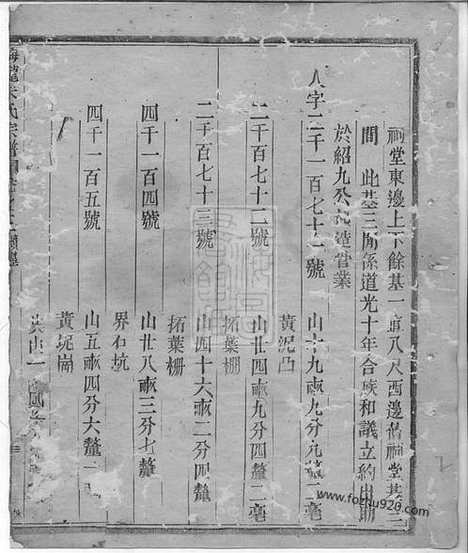 祠堂東邊上下餘基一間八尺西邊舊祠堂基三
間 此基三間係道光十年合族和議立約出助
於紹九公起造管業
人字二千一百七十一號 山十九畝九分九釐二毫
黃泥凸
二千一百七十二號 山廿四畝九分四釐二毫
拓葉棚
二千一百七十三號 山四十六畝二分四釐
拓葉棚
四千一百四號 山廿八畝三分七釐
界石坑
四千一百五號 山五畝四分六釐一
黃坭崗
共山一
氏宗譜
www.fozhu920.com